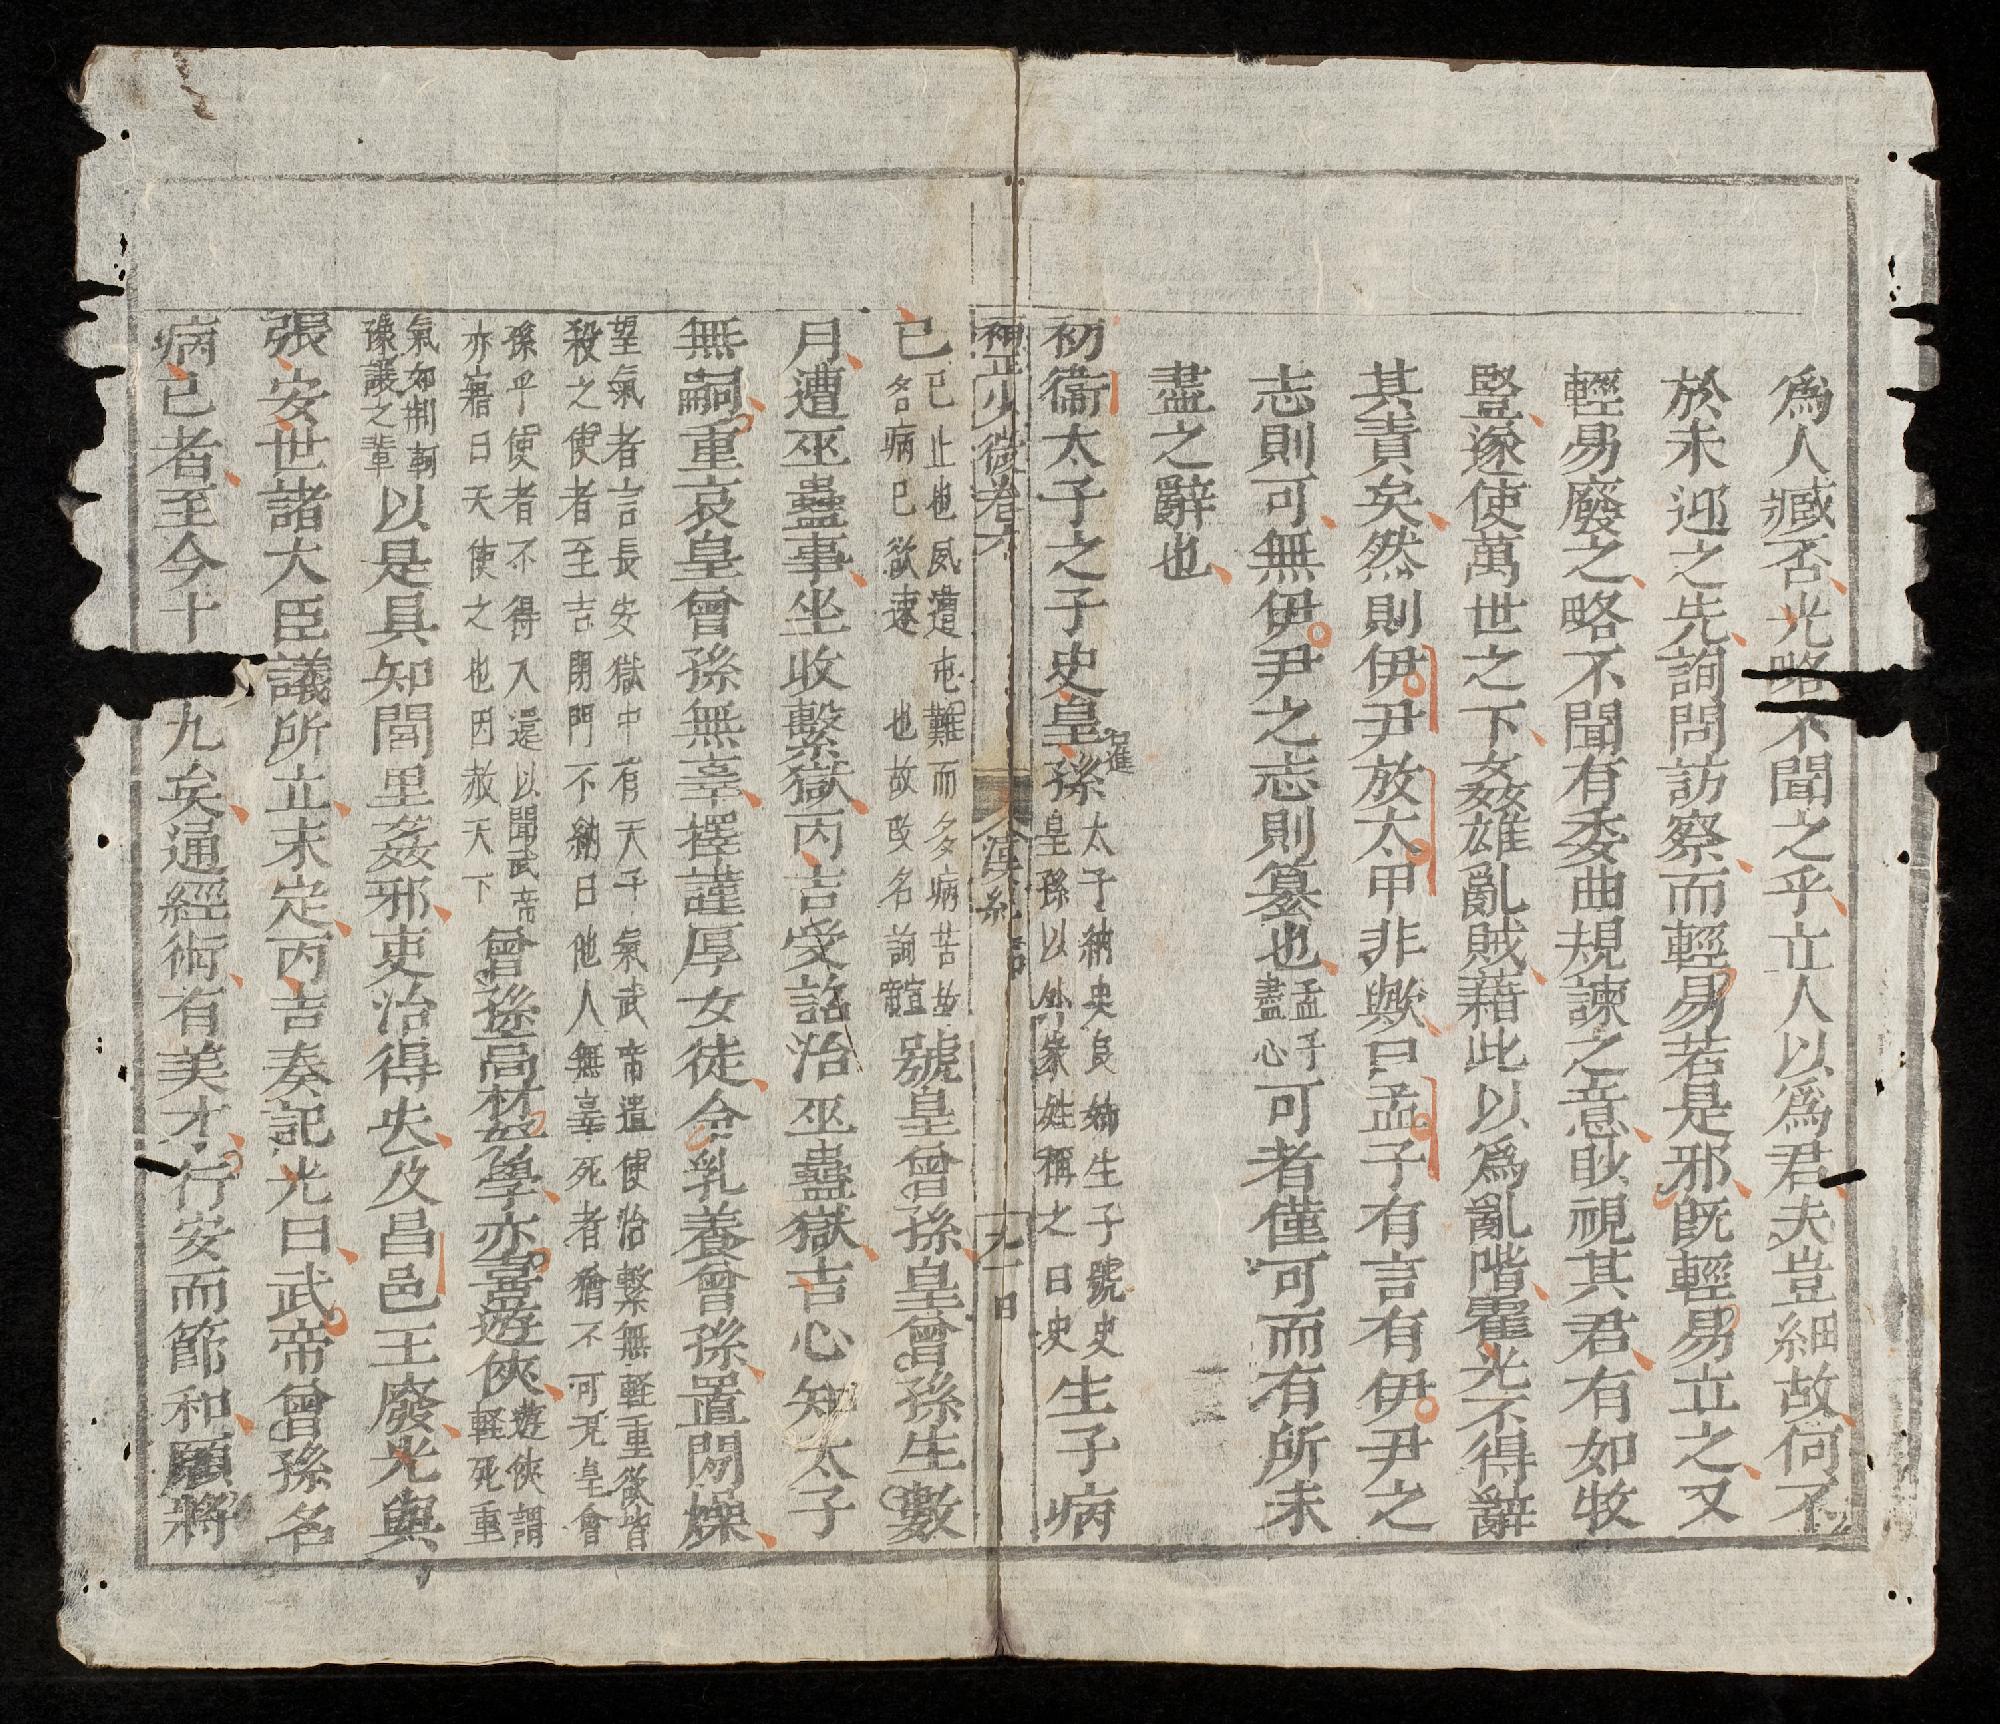 爲人臧否光略不聞之乎立人以爲君夫豈細故何不
於未迎之先詢問訪察而輕易若是邪旣輕易立之又
輕易廢之略不聞有委曲規諫之意眇視其君有如牧
豎遂使萬世之下姦雄亂賊藉此以爲亂階霍光不得辭
其責矣然則伊尹放太甲非歟曰孟子有言有伊尹之
志則可無伊尹之志則簒也孟子盡心可者僅可而有所未
盡之辭也
初衞太子之子史皇孫名進太子納史良娣生子號史皇孫以外家姓稱之曰史生子病
少微卷六 漢紀 宣
已已止也夙遭屯難而多病苦故名病已欲速也故改名詢諠號皇曾孫皇曾孫生數
月遭巫蠱事坐收繫獄丙吉受詔治巫蠱獄吉心知太子
無嗣重哀皇曾孫無辜擇謹厚女徒令乳養曾孫置閒燥
望氣者言長安獄中有天子氣武帝遣使治繫無輕重欲皆
殺之使者至吉閉門不納曰他人無辜死者猶不可况皇曾
孫乎使者不得入還以聞武帝亦寤曰天使之也因赦天下曾孫高材好學亦喜遊俠遊俠謂輕死重
氣如荆軻豫讓之輩以是具知閭里姦邪吏治得失及昌邑王廢光與
張安世諸大臣議所立未定丙吉奏記光曰武帝曾孫名
病已者至今十九矣通經術有美才行安而節和願將